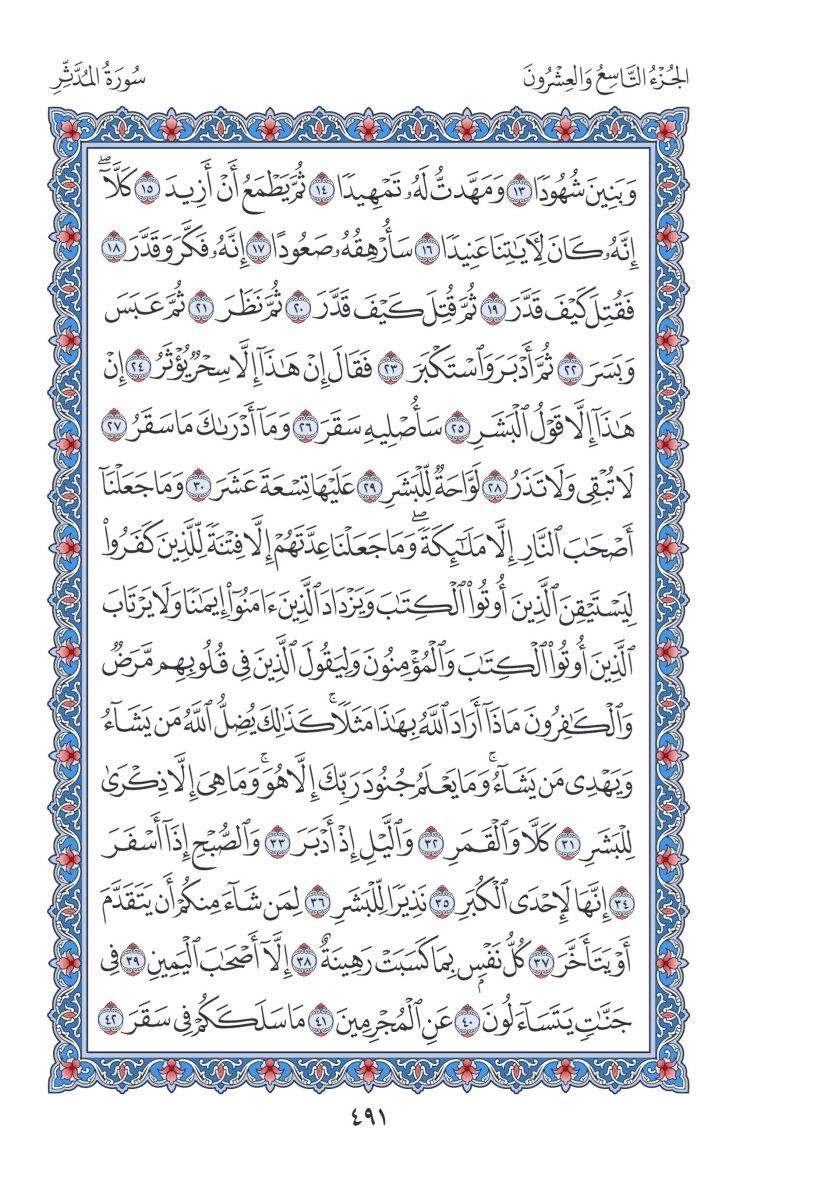 الجُزْءُ التَّاسِعُ وَالعِشْرُونَ
سُورَةُ المُدَّثِّرِ
وَبَنِينَ شُهُودًا ١٣ وَمَهَّدتُّ لَهُۥ تَمْهِيدًا ١٤ ثُمَّ يَطْمَعُ أَنْ أَزِيدَ ١٥ كَلَّآۖ
إِنَّهُۥ كَانَ لِأٓيَٰتِنَا عَنِيدًا ١٦ سَأُرْهِقُهُۥ صَعُودًا ١٧ إِنَّهُۥ فَكَّرَ وَقَدَّرَ ١٨
فَقُتِلَ كَيْفَ قَدَّرَ ١٩ ثُمَّ قُتِلَ كَيْفَ قَدَّرَ ٢٠ ثُمَّ نَظَرَ ٢١ ثُمَّ عَبَسَ
وَبَسَرَ ٢٢ ثُمَّ أَدْبَرَ وَٱسْتَكْبَرَ ٢٣ فَقَالَ إِنْ هَٰذَآ إِلَّا سِحْرٌ يُؤْثَرُ ٢٤ إِنْ
هَٰذَآ إِلَّا قَوْلُ ٱلْبَشَرِ ٢٥ سَأُصْلِيهِ سَقَرَ ٢٦ وَمَآ أَدْرَىٰكَ مَا سَقَرُ ٢٧
لَا تُبْقِي وَلَا تَذَرُ ٢٨ لَوَّاحَةٌ لِّلْبَشَرِ ٢٩ عَلَيْهَا تِسْعَةَ عَشَرَ ٣٠ وَمَا جَعَلْنَآ
أَصْحَٰبَ ٱلنَّارِ إِلَّا مَلَٰٓئِكَةًۖ وَمَا جَعَلْنَا عِدَّتَهُمْ إِلَّا فِتْنَةً لِّلَّذِينَ كَفَرُوا۟
لِيَسْتَيْقِنَ ٱلَّذِينَ أُوتُوا۟ ٱلْكِتَٰبَ وَيَزْدَادَ ٱلَّذِينَ ءَامَنُوٓا۟ إِيمَٰنًا وَلَا يَرْتَابَ
ٱلَّذِينَ أُوتُوا۟ ٱلْكِتَٰبَ وَٱلْمُؤْمِنُونَ وَلِيَقُولَ ٱلَّذِينَ فِي قُلُوبِهِم مَّرَضٌ
وَٱلْكَٰفِرُونَ مَاذَآ أَرَادَ ٱللَّهُ بِهَٰذَا مَثَلًاۚ كَذَٰلِكَ يُضِلُّ ٱللَّهُ مَن يَشَآءُ
وَيَهْدِي مَن يَشَآءُۚ وَمَا يَعْلَمُ جُنُودَ رَبِّكَ إِلَّا هُوَۚ وَمَا هِيَ إِلَّا ذِكْرَىٰ
لِلْبَشَرِ ٣١ كَلَّا وَٱلْقَمَرِ ٣٢ وَٱلَّيْلِ إِذْ أَدْبَرَ ٣٣ وَٱلصُّبْحِ إِذَآ أَسْفَرَ
٣٤ إِنَّهَا لَإِحْدَى ٱلْكُبَرِ ٣٥ نَذِيرًا لِّلْبَشَرِ ٣٦ لِمَن شَآءَ مِنكُمْ أَن يَتَقَدَّمَ
أَوْ يَتَأَخَّرَ ٣٧ كُلُّ نَفْسٍۭ بِمَا كَسَبَتْ رَهِينَةٌ ٣٨ إِلَّآ أَصْحَٰبَ ٱلْيَمِينِ ٣٩ فِي
جَنَّٰتٍ يَتَسَآءَلُونَ ٤٠ عَنِ ٱلْمُجْرِمِينَ ٤١ مَا سَلَكَكُمْ فِي سَقَرَ ٤٢
٤٩١